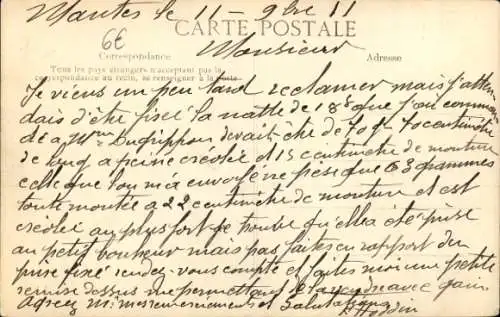 Nantes le 11 - 9bre 11
CARTE POSTALE
6E
Monsieur
Correspondance
Adresse
Tous les pays étrangers n'acceptent pas la
correspondance au recto, se renseigner à la poste
Je viens un peu tard reclamer mais j'atten
dais d'être fixé la natte de 18f que j'ai comman
dé a Mme Dugrippon devait être de 70 centimètre
de long a peine créolée et 15 centimètre de monture
celle que l'on m'a envoyé ne pese que 63 grammes
toute montée a 22 centimètre de monture et est
créolée au plus fort je trouve qu'elle a été prise
au petit bonheur mais pas faites en rapport du
prix fixé rendez-vous compte et faites moi une petite
remise dessus me permettant de la vendre avec gain
Agreez Mr mes remerciements et Salutations